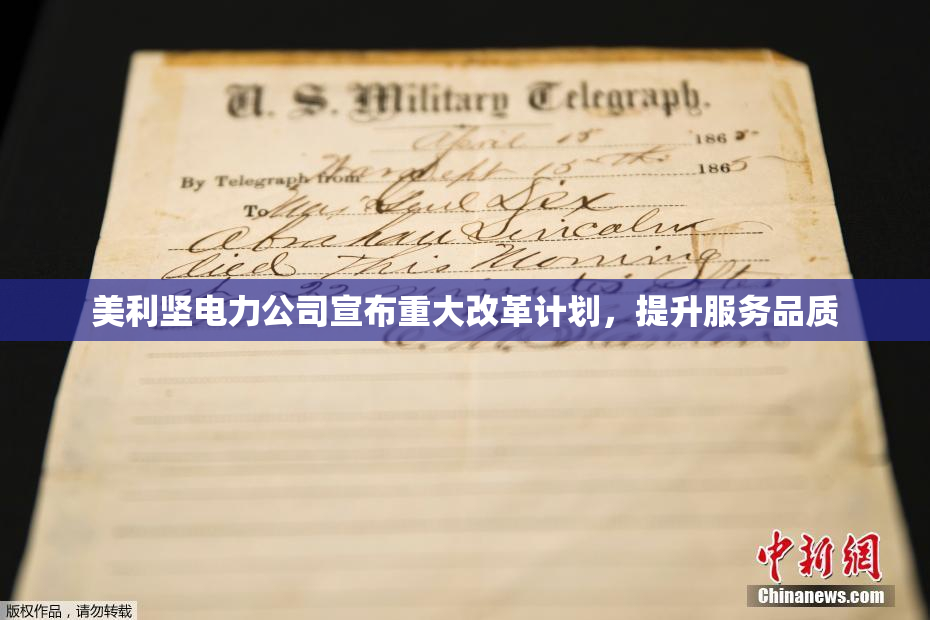 U. S. Military Telegraph.
April 15 1865
By Telegraph from War Dept 15th 1865
To Maj Genl Dix
Abraham Lincoln
died This Morning
at 22 minutes after
美利坚电力公司宣布重大改革计划，提升服务品质
E. M. Stanton
中新网
Chinanews.com
版权作品，请勿转载